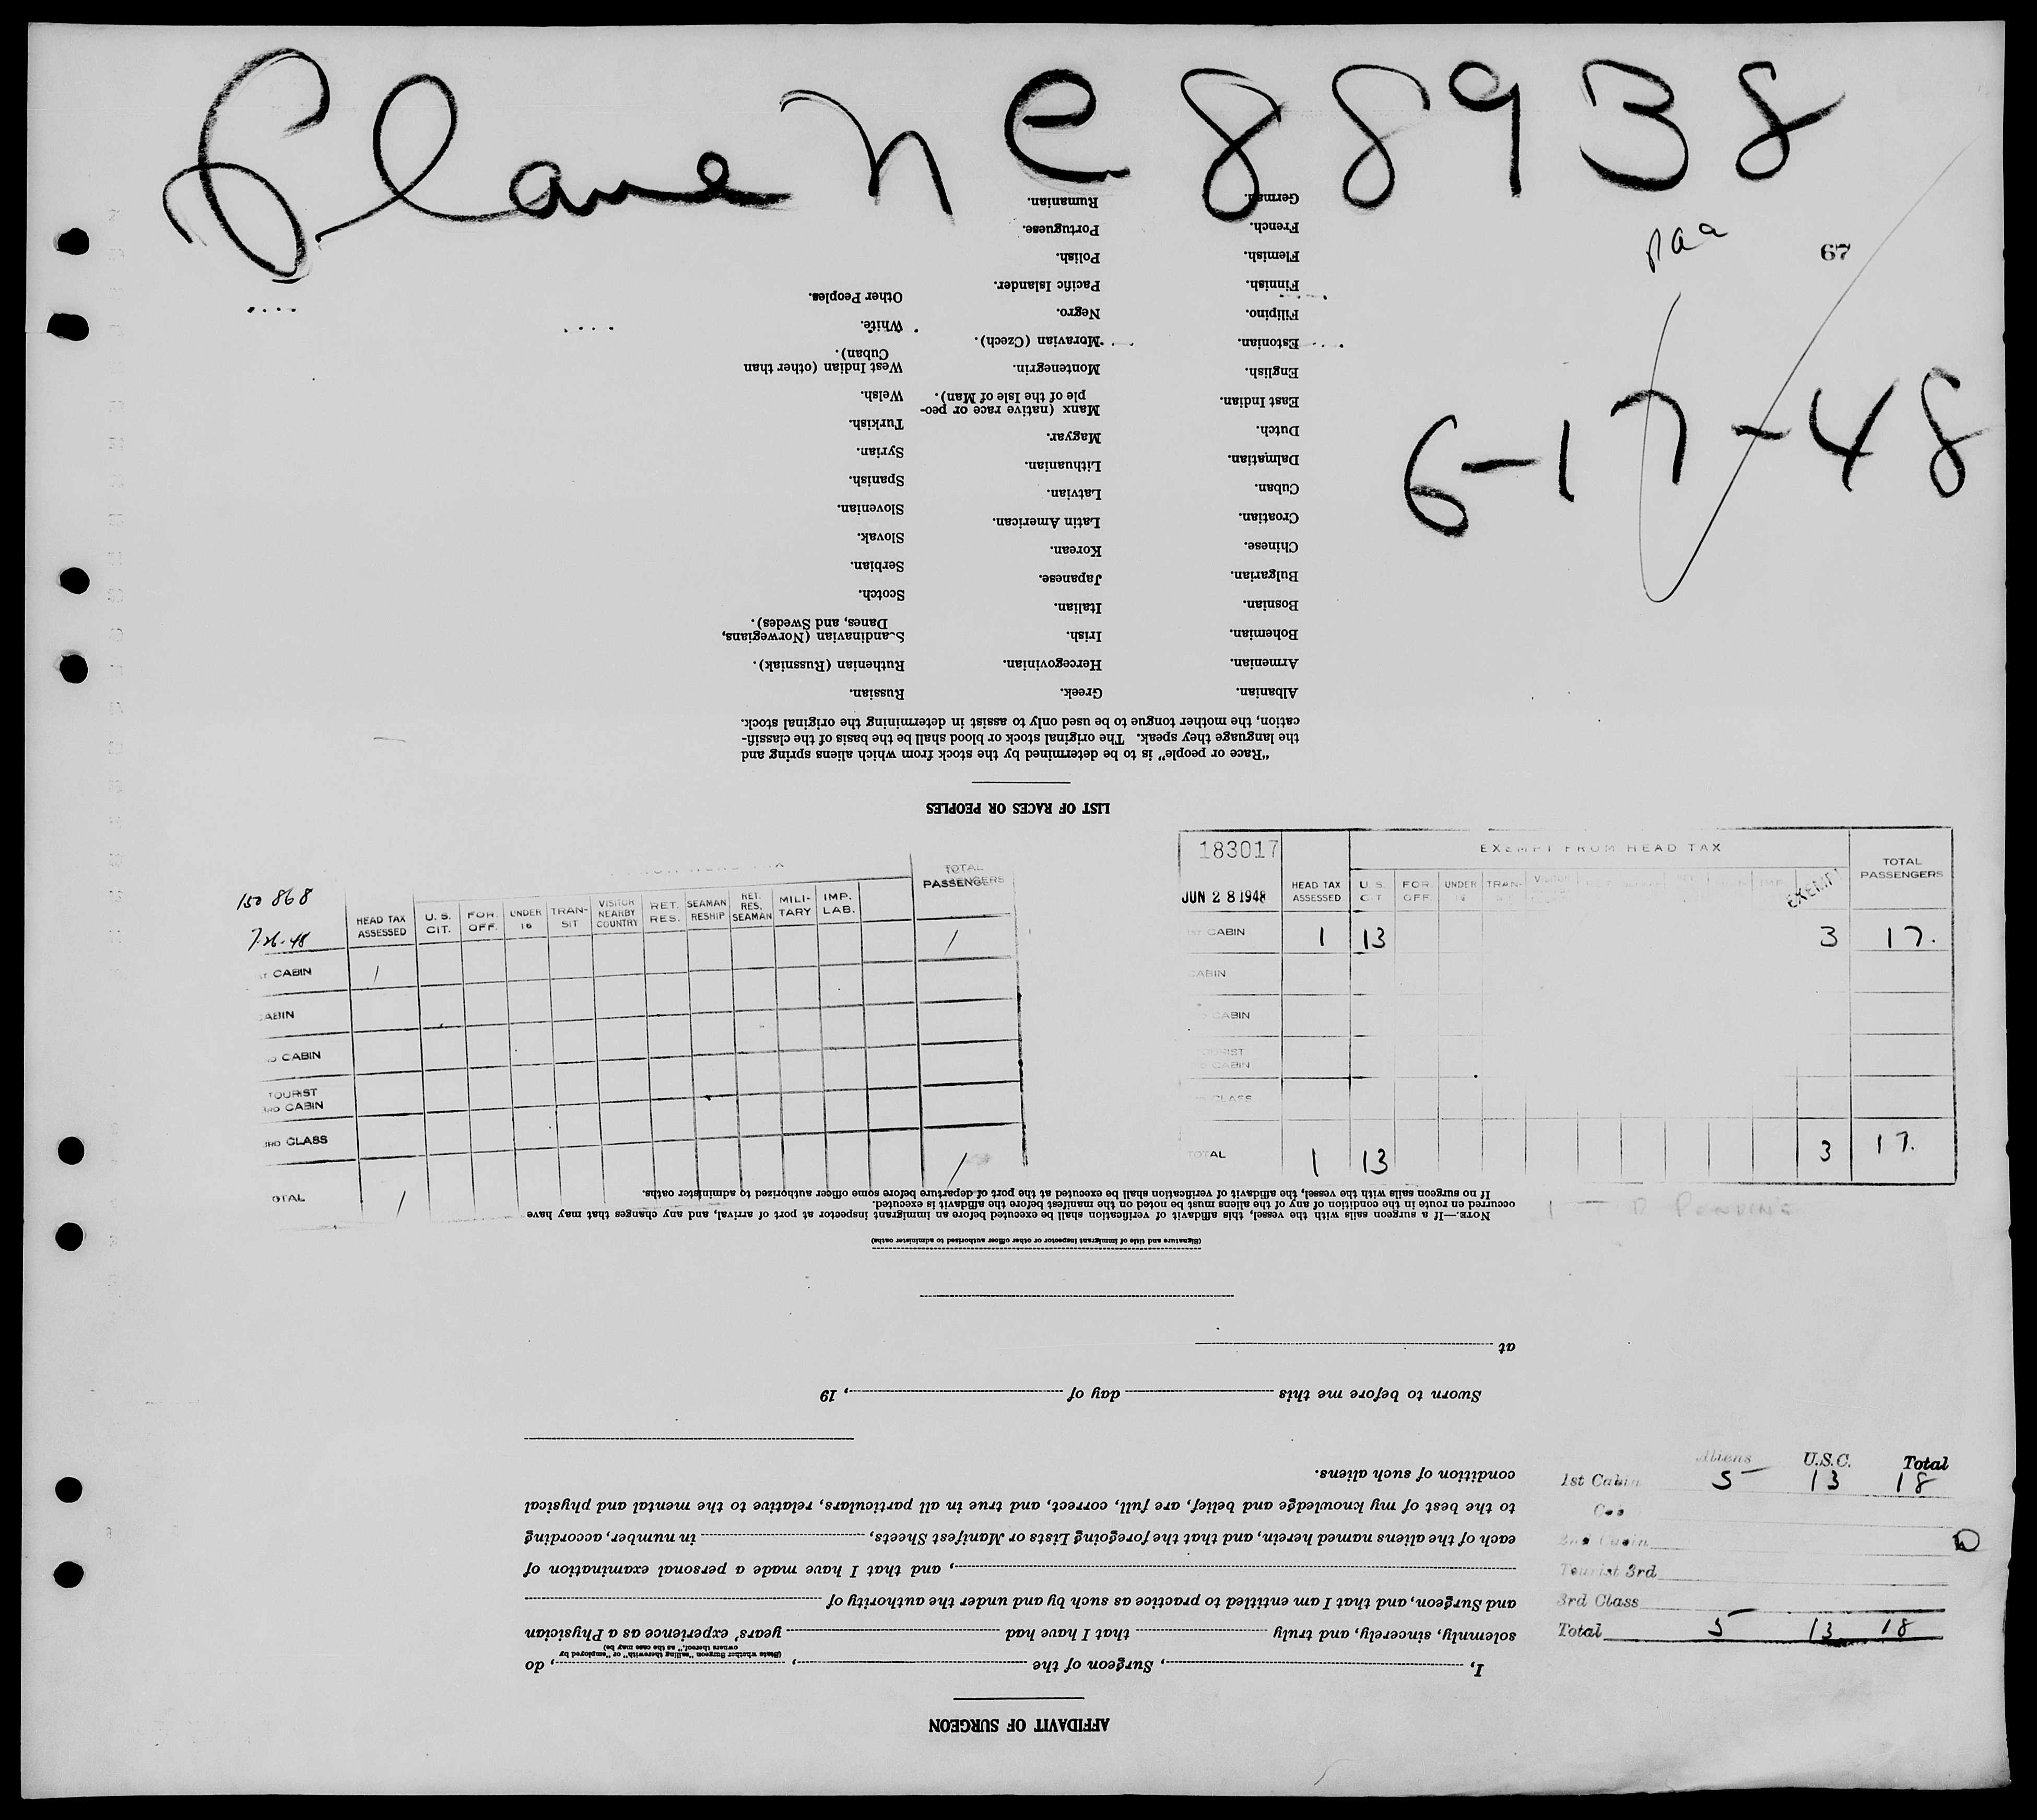 Plane NC 88938
paa
67
6-17-48
150868
7-26-48
TOTAL PASSENGERS
HEAD TAX ASSESSED
U. S. CIT.
FOR. OFF.
UNDER 16
TRANSIT
VISITOR NEARBY COUNTRY
RET. RES.
SEAMAN RESHIP
RET. RES. SEAMAN
MILITARY
IMP. LAB.
CABIN 1 1
CABIN
CABIN
TOURIST
3RD CABIN
3RD CLASS
OTAL 1 1
183017
JUN 28 1948
EXEMPT FROM HEAD TAX
HEAD TAX ASSESSED
U. S. CIT.
FOR. OFF.
UNDER 16
TRAN-
EXEMPT
TOTAL PASSENGERS
1ST CABIN 1 13 3 17.
CABIN
CABIN
CABIN
CLASS
TOTAL 1 13 3 17.
PENDING
Aliens U.S.C. Total
1st Cabin 5 13 18
2nd Cabin
Tourist 3rd
3rd Class
Total 5 13 18
AFFIDAVIT OF SURGEON
I, , Surgeon of the , , do
(State whether Surgeon "sailing therewith" or "employed by owners thereof," as the case may be)
solemnly, sincerely, and truly that I have had years' experience as a Physician
and Surgeon, and that I am entitled to practice as such by and under the authority of
, and that I have made a personal examination of
each of the aliens named herein, and that the foregoing Lists or Manifest Sheets, in number, according
to the best of my knowledge and belief, are full, correct, and true in all particulars, relative to the mental and physical
condition of such aliens.
Sworn to before me this day of , 19
at
(Signature and title of immigrant inspector or other officer authorized to administer oaths)
NOTE.—If a surgeon sails with the vessel, this affidavit of verification shall be executed before an immigrant inspector at port of arrival, and any changes that may have
occurred en route in the condition of any of the aliens must be noted on the manifest before the affidavit is executed.
If no surgeon sails with the vessel, the affidavit of verification shall be executed at the port of departure before some officer authorized to administer oaths.
LIST OF RACES OR PEOPLES
"Race or people" is to be determined by the stock from which aliens spring and
the language they speak. The original stock or blood shall be the basis of the classifi-
cation, the mother tongue to be used only to assist in determining the original stock.
Albanian.
Armenian.
Bohemian.
Bosnian.
Bulgarian.
Chinese.
Croatian.
Cuban.
Dalmatian.
Dutch.
East Indian.
English.
Estonian.
Filipino.
Finnish.
Flemish.
French.
German.
Greek.
Hercegovinian.
Irish.
Italian.
Japanese.
Korean.
Latin American.
Latvian.
Lithuanian.
Magyar.
Manx (native race or peo-
ple of the Isle of Man).
Montenegrin.
Moravian (Czech).
Negro.
Pacific Islander.
Polish.
Portuguese.
Rumanian.
Russian.
Ruthenian (Russniak).
Scandinavian (Norwegians,
Danes, and Swedes).
Scotch.
Serbian.
Slovak.
Slovenian.
Spanish.
Syrian.
Turkish.
Welsh.
West Indian (other than
Cuban).
White.
Other Peoples.